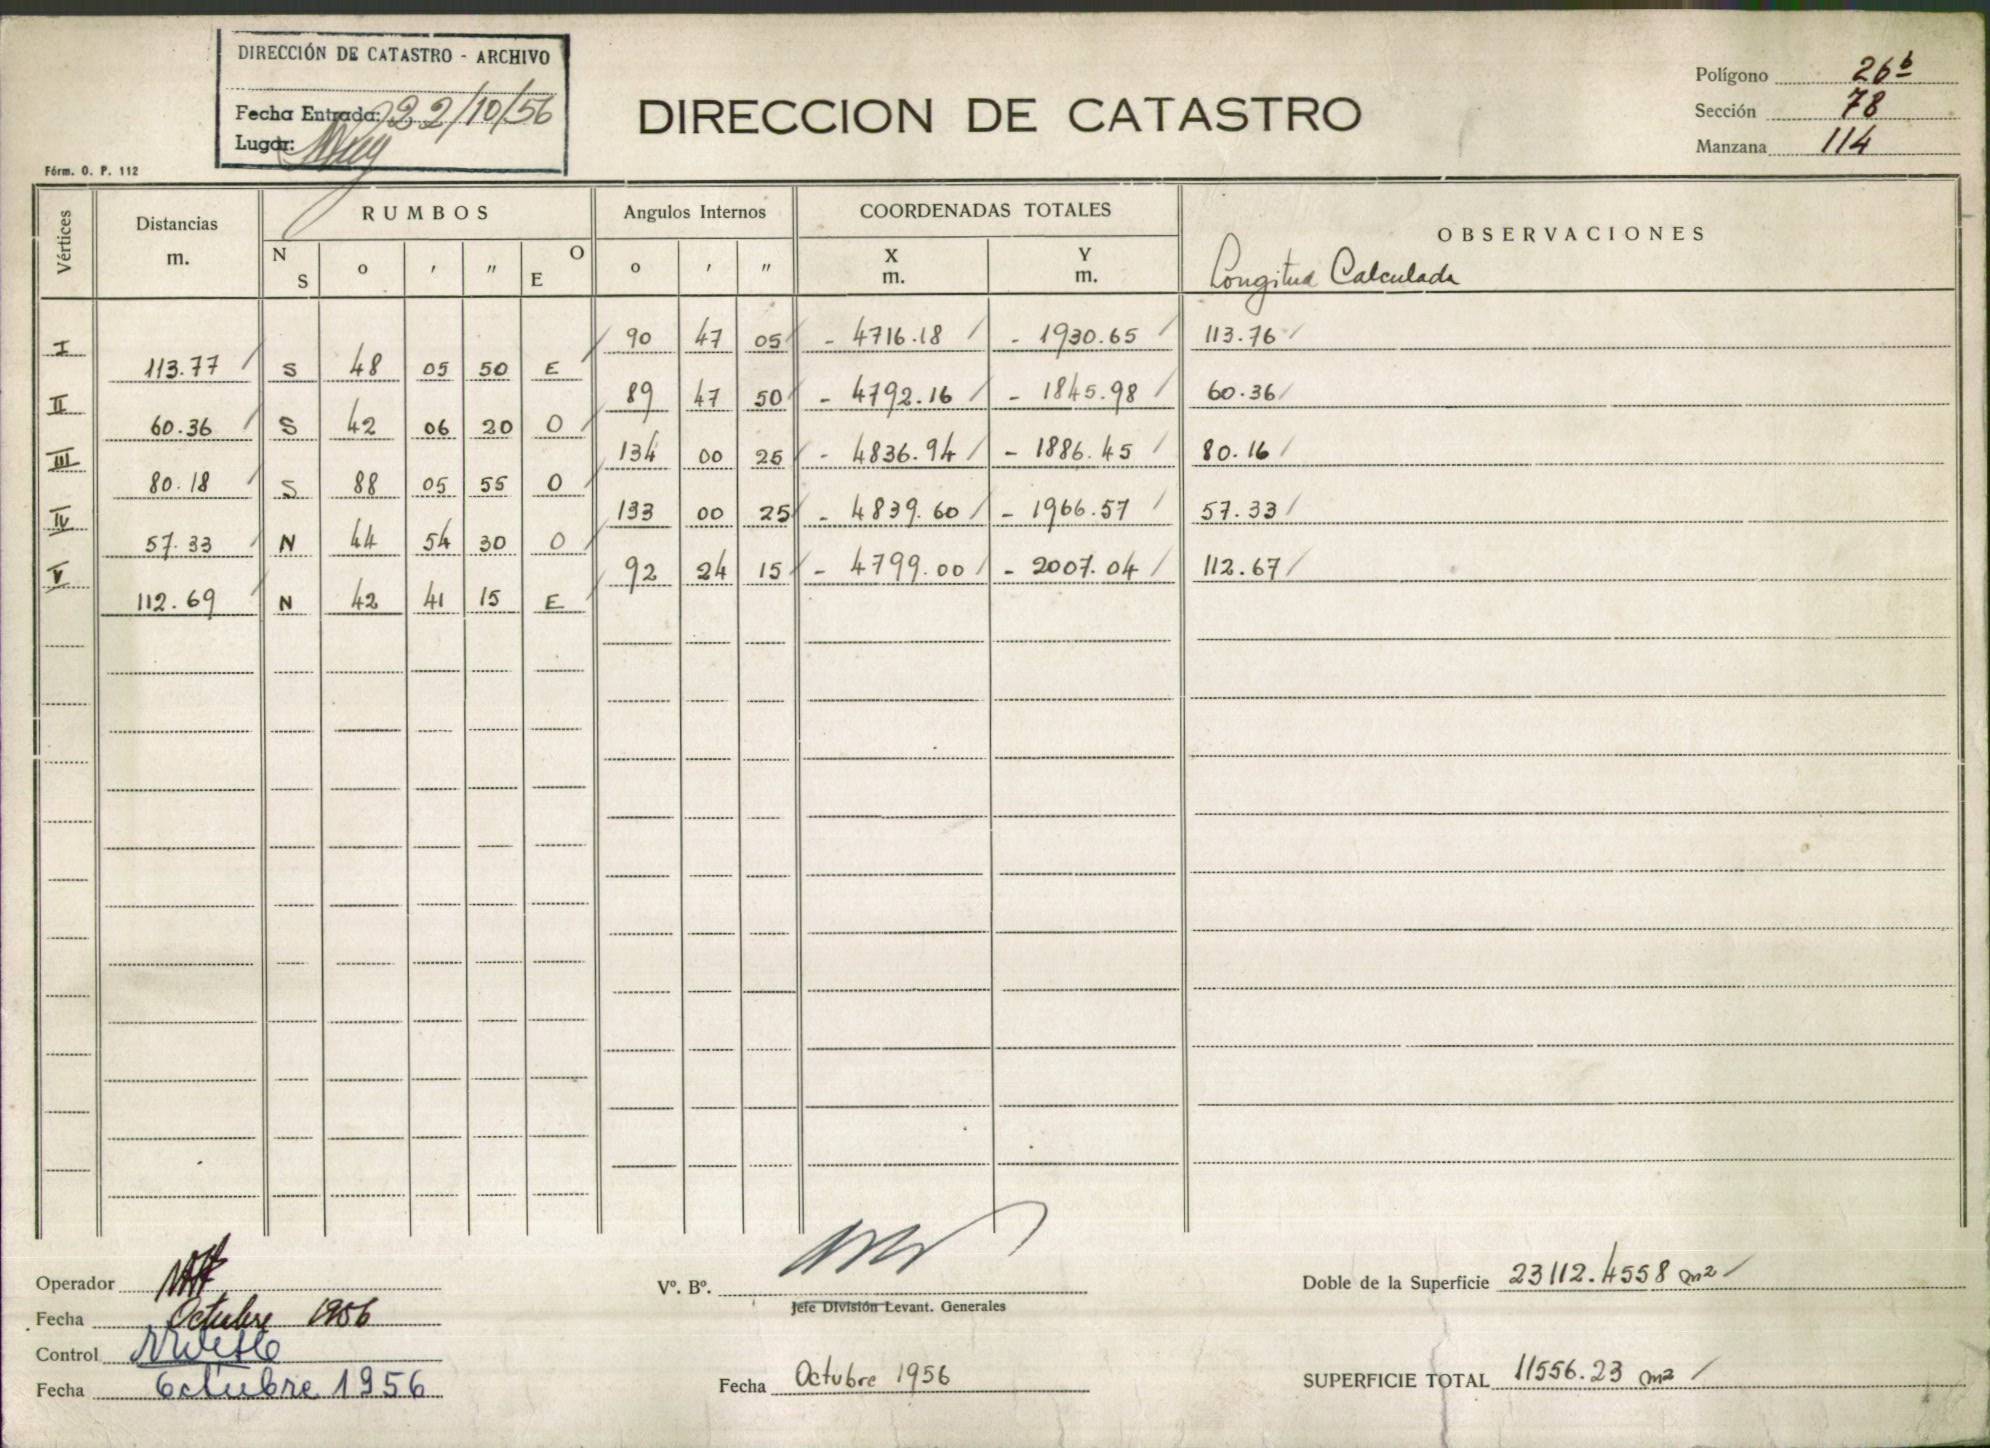 DIRECCIÓN DE CATASTRO - ARCHIVO
Fecha Entrada: 22/10/56
Lugar:
DIRECCION DE CATASTRO
Polígono 26b
Sección 78
Manzana 114
Fórm. O. P. 112
Vértices Distancias m. RUMBOS Angulos Internos COORDENADAS TOTALES OBSERVACIONES
N S o ' " O E o ' " X m. Y m. Longitud Calculada
I 90 47 05 - 4716.18 - 1930.65 113.76
113.77 S 48 05 50 E
II 89 47 50 - 4792.16 - 1845.98 60.36
60.36 S 42 06 20 O
III 134 00 25 - 4836.94 - 1886.45 80.16
80.18 S 88 05 55 O
IV 133 00 25 - 4839.60 - 1966.57 57.33
57.33 N 44 54 30 O
V 92 24 15 - 4799.00 - 2007.04 112.67
112.69 N 42 41 15 E
Operador
Fecha Octubre 1956
Control
Fecha Octubre 1956
Vº. Bº.
Jefe División Levant. Generales
Fecha Octubre 1956
Doble de la Superficie 23112.4558 m2
SUPERFICIE TOTAL 11556.23 m2